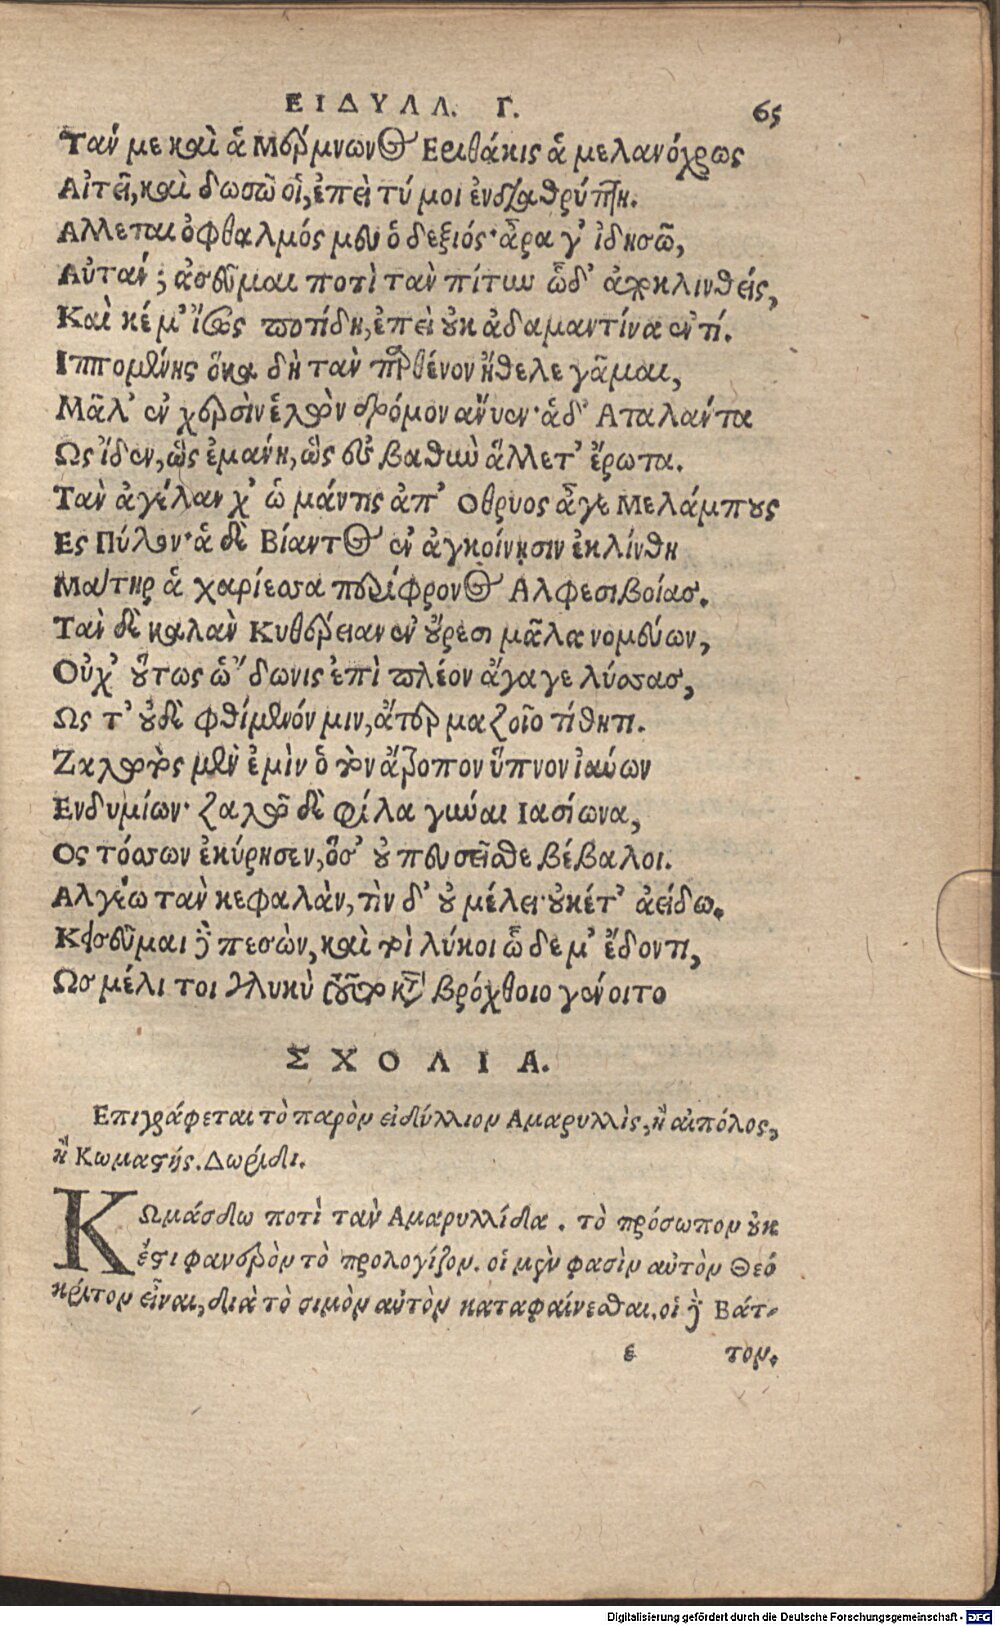 ΕΙΔΥΛΛ. Γ. 65
Τάν με καὶ ἁ Μέρμνωνος Εριθάκις ἁ μελανόχρως
Αἰτεῖ, καὶ δωσῶ οἱ, ἐπεὶ τύ μοι ἐνδιαθρύπτῃ.
Αλλεται ὀφθαλμός μευ ὁ δεξιός· ἆρα γ' ἰδησῶ,
Αὐτάν; ἀσεῦμαι ποτὶ τὰν πίτυν ὧδ' ἀποκλινθείς,
Καὶ κέ μ' ἴσως ποτίδῃ, ἐπεὶ οὐκ ἀδαμαντίνα ἐντί.
Ιππομένης ὅκα δὴ τὰν παρθένον ἤθελε γᾶμαι,
Μᾶλ' ἐν χερσὶν ἑλὼν δρόμον ἄνυεν· ἁ δ' Αταλάντα
Ως ἴδεν, ὣς ἐμάνη, ὣς εἰς βαθὺν ἅλλετ' ἔρωτα.
Τὰν ἀγέλαν χ' ὡ μάντις ἀπ' Οθρυος ἆγε Μελάμπους
Ες Πύλον· ἁ δὲ Βίαντος ἐν ἀγκοίνῃσιν ἐκλίνθη
Μάτηρ ἁ χαρίεσσα περίφρονος Αλφεσιβοίας.
Τὰν δὲ καλὰν Κυθέρειαν ἐν οὔρεσι μᾶλα νομεύων,
Οὐχ' οὕτως ὡ῎δωνις ἐπὶ πλέον ἄγαγε λύσσας,
Ως τ' οὐδὲ φθίμενόν μιν, ἄτερ μαζοῖο τίθητι.
Ζαλωτὸς μὲν ἐμὶν ὁ τὸν ἄτροπον ὕπνον ἰαύων
Ενδυμίων· ζαλῶ δὲ φίλα γύναι Ιασίωνα,
Ος τόσσων ἐκύρησεν, ὅσ' οὐ πευσεῖσθε βέβαλοι.
Αλγέω τὰν κεφαλὰν, τὶν δ' οὐ μέλει· οὐκέτ' ἀείδω.
Κεισεῦμαι δὲ πεσὼν, καὶ τοὶ λύκοι ὧδε μ' ἔδοντι,
Ως μέλι τοι γλυκὺ τοῦτο κατὰ βρόχθοιο γένοιτο
ΣΧΟΛΙΑ.
Επιγράφεται τὸ παρὸν εἰδύλλιον Αμαρυλλὶς, ἢ αἰπόλος,
ἢ Κωμαστής. Δωρίδι.
ΚΩμάσδω ποτὶ τὰν Αμαρυλλίδα. τὸ πρόσωπον οὐκ
ἔστι φανερὸν τὸ προλογίζον. οἱ μὲν φασὶν αὐτὸν Θεό
κριτον εἶναι, διὰ τὸ σιμὸν αὐτὸν καταφαίνεσθαι. οἱ δὲ Βάτ-
ε τον.
Digitalisierung gefördert durch die Deutsche Forschungsgemeinschaft - DFG